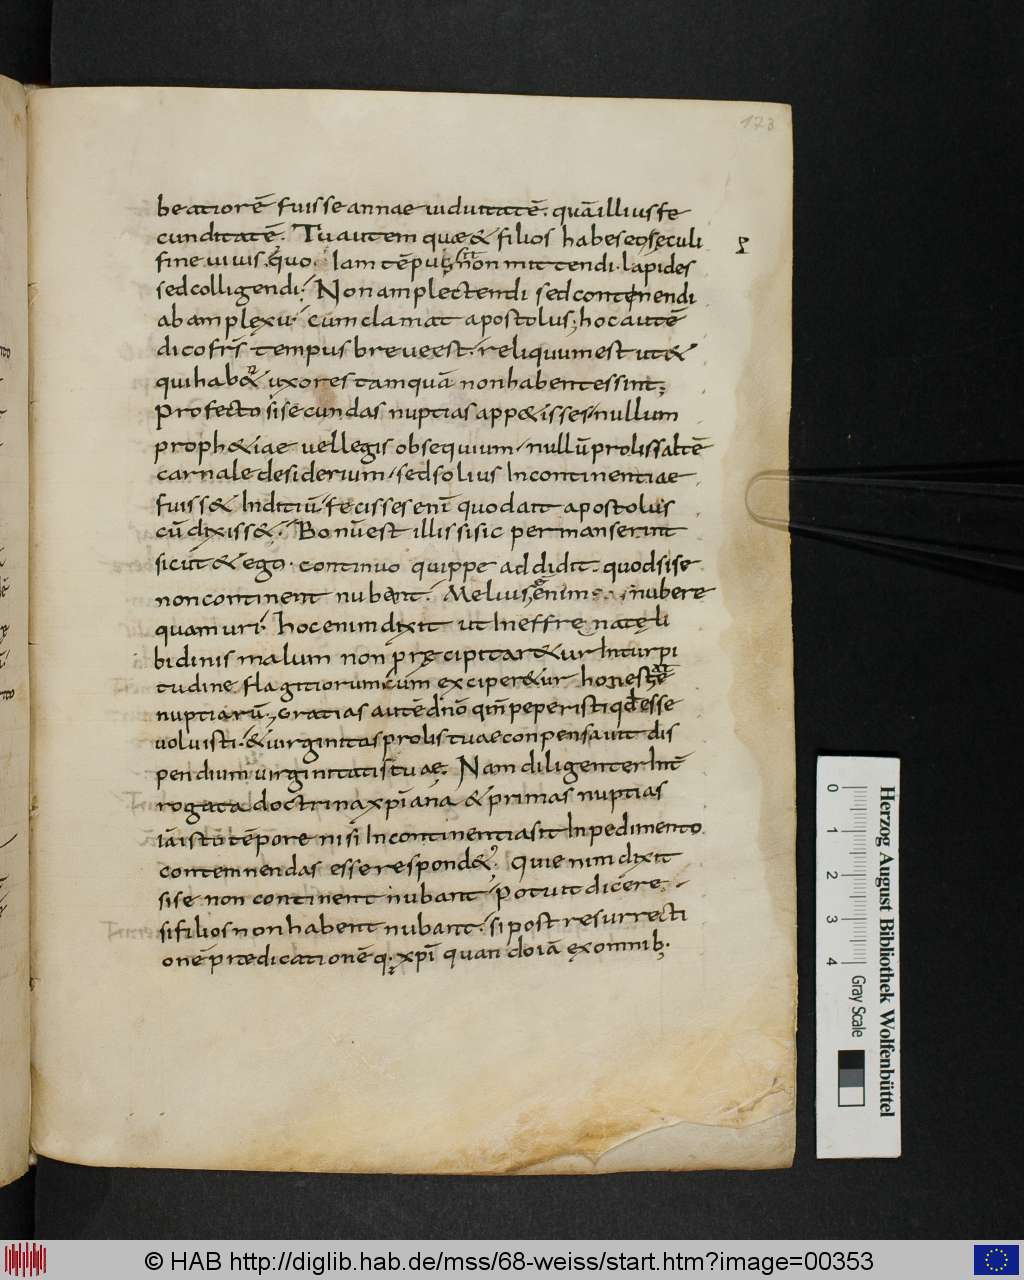 173
beatiorē fuisse annae uiduitatē. quā illius fe
cunditatē. Tu autem quae & filios habes & in seculi
fine uiuis. quo Iam tēpus non mittendi lapides
sed colligendi. Non amplectendi sed contenendi
ab amplexu. cum clamat apostolus; hoc autē
dico frs̄ tempus breue est. reliquum est ut &
qui habent uxores tamquā non habentes sint;
Profecto si secundas nuptias app&isses nullum
proph&iae uel legis obsequium nullū prolis saltē
carnale desiderium sed solius Incontinentiae
fuiss& Inditiū. fecisses enī quod ait apostolus
cū dixiss&. Bonū est illis si sic permanserint
sicut & ego. continuo quippe addidit. quod si se
non continent nubant. Melius enim nubere
quam uri. hoc enim dixit ut In effrenatę li
bidinis malum non pręcipitar&ur In turpi
tudine flagitiorum cum exciper&ur honestate
nuptiarū. Gratias autē dn̄o qm̄ peperisti qd esse
uoluisti. & uirginitas prolis tuae conpensauit dis
pendium uirginitatis tuae. Nam diligenter Intē
rogata doctrina xpīana & primas nuptias
iā isto tēpore nisi Incontinentia sit Inpedimento
contemnendas esse respond&. Qui enim dixit
si se non continent nubant. Potuit dicere
si filios non habent nubant. si post resurrecti
onē prædicationē q; xpī quando iā ex omnib;
Herzog August Bibliothek Wolfenbüttel
0 1 2 3 4 Gray Scale
© HAB http://diglib.hab.de/mss/68-weiss/start.htm?image=00353